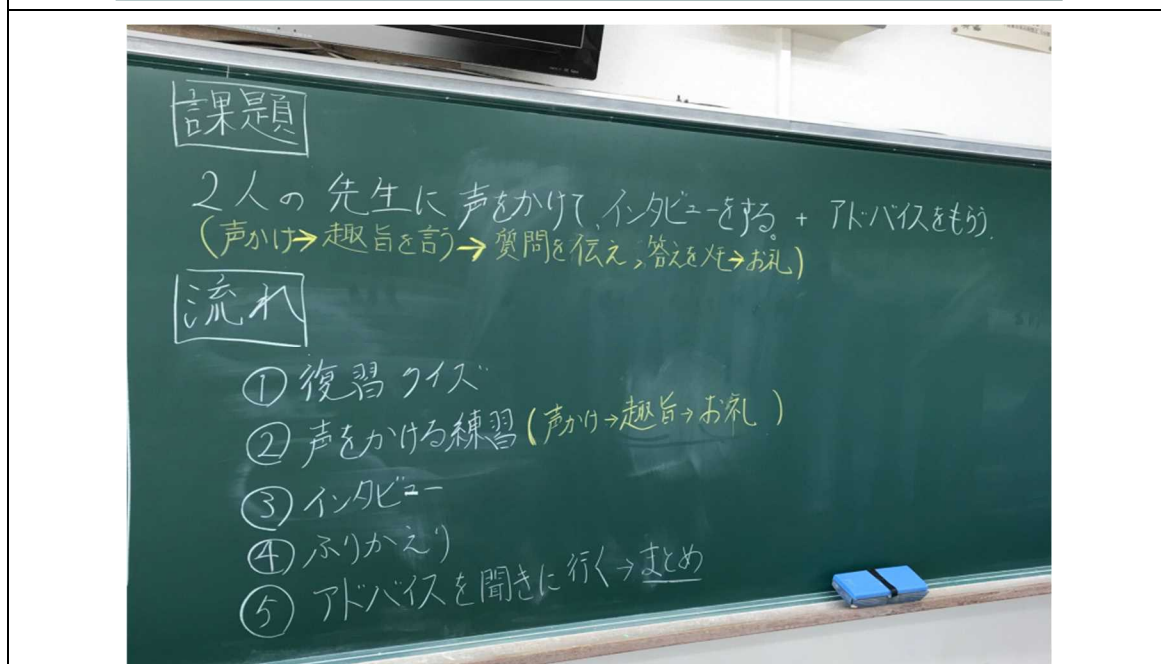 課題
2人の先生に声をかけて、インタビューをする。+ アドバイスをもらう。
(声かけ→趣旨を言う→質問を伝え、答えをメモ→お礼)
流れ
① 復習クイズ
② 声をかける練習(声かけ→趣旨→お礼)
③ インタビュー
④ ふりかえり
⑤ アドバイスを聞きに行く→まとめ